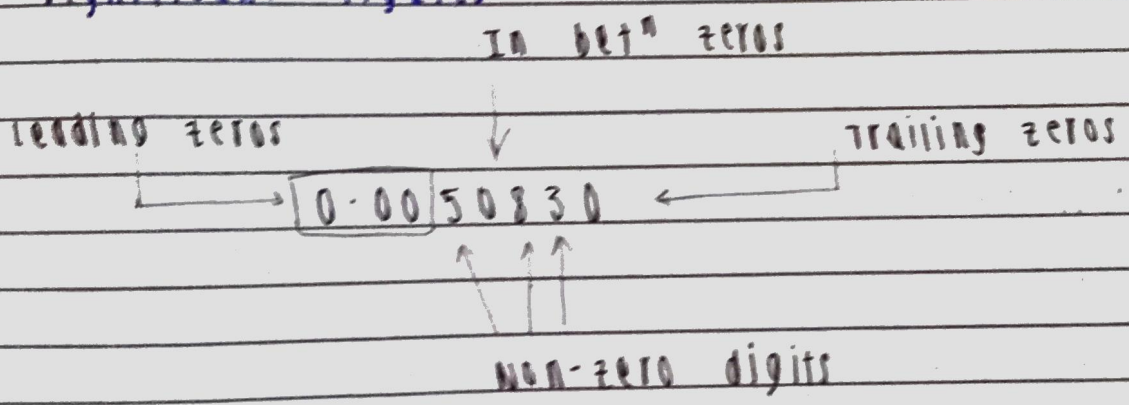 In betⁿ zeros
leading zeros
Trailing zeros
0.0050830
Non-zero digits